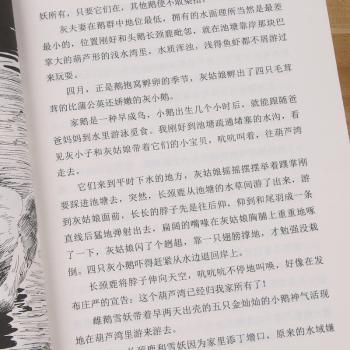 妖所有，只要它们在，其他鹅便不敢
灰夫妻在鹅群中地位最低，拥有的水面理所当然是最
最小的，位置刚好和头鹅长颈鹿毗邻，就在池塘靠岸那块巴
掌大的葫芦形的浅水湾里，水质浑浊，浅得鱼虾都不屑游过
来玩耍。
四月，正是鹅抱窝孵卵的季节，灰姑娘孵出了四只毛茸
茸的比蒲公英还娇嫩的灰小鹅。
家鹅是一种早成鸟，小鹅出生几个小时后，就能跟随爸
爸妈妈到水里游泳觅食。我刚好到池塘疏通堵塞的水沟，看
见灰小子和灰姑娘带着它们的小宝贝，吭吭叫着，往葫芦湾
走去。
它们来到平时下水的地方，灰姑娘摇摇摆摆举着蹼掌刚
要踩进池塘去，突然，长颈鹿从池塘的水草间游了出来，游
到灰姑娘面前，长长的脖子先是往后仰，仰到和尾羽成一条
直线后猛地弹射出去，扁阔的嘴喙在灰姑娘胸脯上重重地啄
了一下，灰姑娘闪了个趔趄，靠一只翅膀撑地，才勉强没栽
倒。四只灰小鹅吓得赶紧从水边退回岸上。
长颈鹿将脖子伸向天空，吭吭吭不停地叫唤，好像在发
布庄严的宣告：这个葫芦湾已经归我家所有了！
雌鹅雪妖带着早两天出壳的五只金灿灿的小鹅神气活现
地在葫芦湾里游来游去。
长颈鹿和雪妖因为家里添丁增口，原来的水域嫌